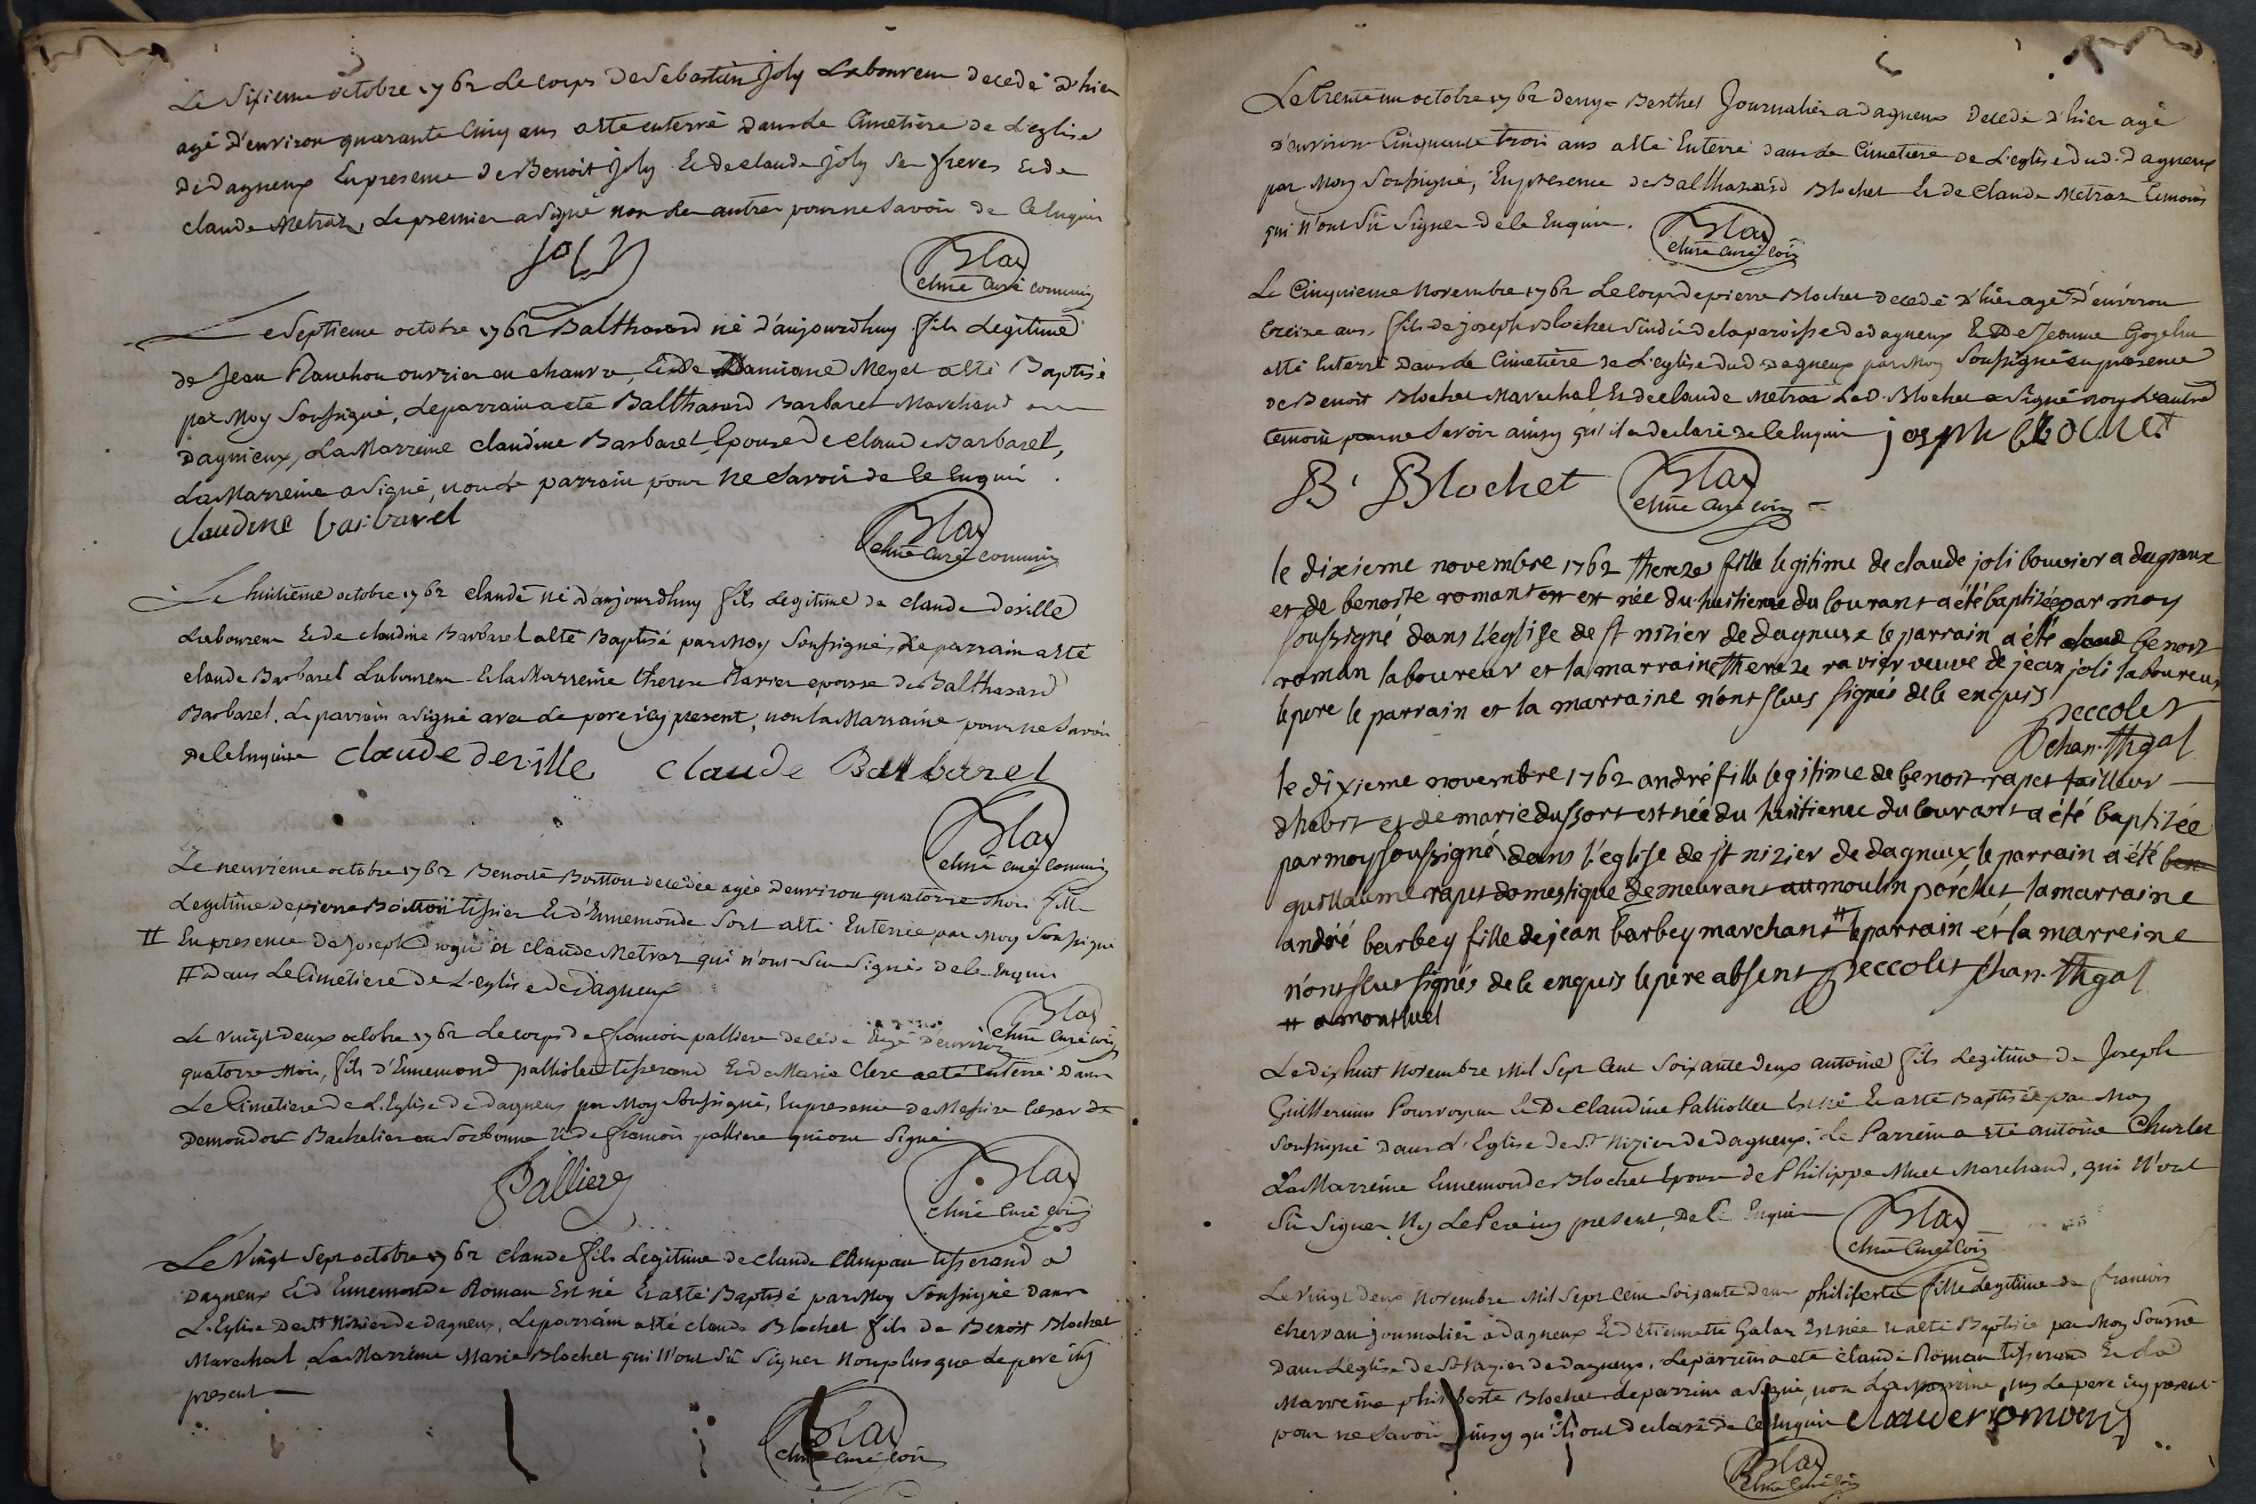 Le Sixieme octobre 1762 Le corps De Sebastien Joly Laboureur decedé d'hier
agé d'environ quarante Cinq ans a eté enterré Dans Le Cimetiere de L'eglise
De Dagneux En presence De Benoit Joly Et de claude joly Ses freres Et de
claude Metraz, Le premier a Signé non Les autres pour ne Savoir de Ce Enquis
Joly
Blaz
chne Curé commis
Le Septieme octobre 1762 Balthazard né d'aujourdhuy fils Legitime
de Jean Planchon ouvrier en chanvre, Et de Damiane Meyet a eté Baptisé
par Moy Soussigné, Le parrain a eté Balthazard Barbaret Marchand
Dagnieux, La Marreine claudine Barbaret Epouse De claude Barbaret,
La Marreine a Signé, non Le parrain pour Ne Savoir de Ce Enquis.
Claudine barbaret
Blaz
chne Curé commis
Le huitième octobre 1762 claude né d'aujourdhuy fils Legitime de claude deville
Laboureur Et de claudine Barbaret a eté Baptisé par Moy Soussigné, Le parrain a eté
claude Barbaret Laboureur Et la Marreine therese Ravier epouse de Balthasard
Barbaret. Le parrain a Signé avec Le pere icy present, non la Marraine pour ne Savoir
De Ce Enquise Claude deville Claude Barbaret
Blaz
chne curé commis
Le neuvieme octobre 1762 Benoite Boitton decedée agée d'environ quatorze mois fille
Legitime de pierre Boitton tissier Et d'Ennemonde Sort a eté Enterrée par Moy Soussigné
# En presence De Joseph et claude Metraz qui n'ont Su Signer de Ce Enquis
# Dans Le Cimetiere De L'eglise de Dagneux
Blaz
chne Curé cois
Le vingt Deux octobre 1762 Le corps de francois palliere decédé agé d'environ
quatorze Mois, fils d'Ennemond palliere tisserand Et de Marie Clerc a eté enterré Dans
Le Cimetiere De L'Eglise De Dagneux par Moy Soussigné, En presence de Messire Cesar De
Demondor Bachelier en Sorbonne Et de francois palliere qui ont Signé
Palliere
Blaz
chne Curé cois
Le Vingt Sept octobre 1762 claude fils Legitime de claude tisserand a
Dagneux Et d'Ennemonde Roman Est né Et a eté Baptisé par Moy Soussigné Dans
L'Eglise De St Nizier de Dagneux, Le parrain a eté claude Blochet fils de Benoit Blochet
Marechal, La Marreine Marie Blochet qui n'ont Sû Signer Non plus que Le pere icy
present
Blaz
chne curé cois
Le trente un octobre 1762 Berthet Journalier a dagneux decedé d'hier agé
d'environ Cinquante trois ans a eté Enterré dans Le Cimetiere de L'eglise dud. dagneux
par Moy Soussigné, En presence de Balthazard Blochet Et de Claude Metraz temoins
qui n'ont Sû Signer de Ce Enquis.
Blaz
chne Curé cois
Le Cinquieme Novembre 1762 Le corps de pierre Blochet decedé d'hier agé d'environ
treize ans, fils de joseph Blochet Sindic de la paroisse de dagneux Et De Jeanne
a eté Enterré Dans Le Cimetiere de L'eglise dud. Dagneux par Moy Soussigné en presence
de Benoit Blochet Marechal Et de claude Metraz Led. Blochet a Signé non L'autre
temoin pour ne Savoir ainsy qu'il a declaré de Ce Enquis joseph BLOCHET
B. Blochet
Blaz
chne Curé cois
le dixieme novembre 1762 thereze fille legitime de claude joli bouvier a dagneux
et de benoite romant est née du huitieme du courant a été baptizée par moy
soussigné dans l'eglise de st nizier de dagneux le parrain a été benoit
roman laboureur et la marraine thereze ravier veuve de jean joli laboureur
le pere le parrain et la marraine n'ont sçus signés de ce enquis
Peccolet
chan. thgal
le dixieme novembre 1762 andré fille legitime de benoit rapet tailleur
dhabit et de marie dussort est née du huitieme du courant a été baptizée
par moy soussigné dans l'eglise de st nizier de dagnieux le parrain a été
guillaume rapet domestique demeurant au moulin porchet, la marraine
andré barbey fille de jean barbey marchant # le parrain et la marreine
n'ont sçut signés de ce enquis le père absent Peccolet chan. thgal
# a montluel
Le dix huit Novembre Mil Sept Cent Soixante deux antoine fils Legitime de Joseph
Guillermin Pourvoyeur Et De claudine Palliollet Est né Et a eté Baptisé par Moy
Soussigné dans L'Eglise de St Nizier de Dagneux; Le Parrein a eté antoine
La Marreine Ennemonde Blochet Epouse de Philippe Muet Marchand, qui N'ont
Sû Signer Ny Le Pere icy present, De Ce Enquis
Blaz
chne Curé Cois
Le Vingt Deux Novembre Mil Sept Cent Soixante Deux philiberte fille Legitime de francois
chervan journalier a dagneux Et d'Etiennette Galan Est née Et a eté Baptisée par Moy Sousné
Dans L'eglise de St Nizier de Dagneux. Le parrein a eté claude Roman tisserand Et La
Marreine philiberte Blochet Le parrein a Signé, non La Marreine, ny Le pere icy present
pour ne Savoir ainsy qu'ils ont declaré de Ce Enquis Claude roman
Blaz
chne Curé cois